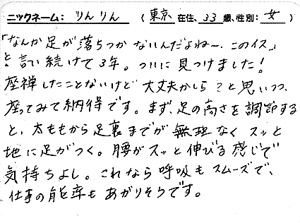 ニックネーム: りんりん (東京 在住、33 歳、性別: 女 )
「なんか足が落ちつかないんだよねー、このイス」
と言い続けて3年。ついに見つけました!
座禅したことないけど大丈夫かしら?と思いつつ、
座ってみて納得です。まず、足の高さを調節する
と、太ももから足裏までが無理なく スッと
地に足がつく。腰がスッと伸びる感じで
気持ちよし。これなら呼吸もスムーズで、
仕事の能率もあがりそうです。